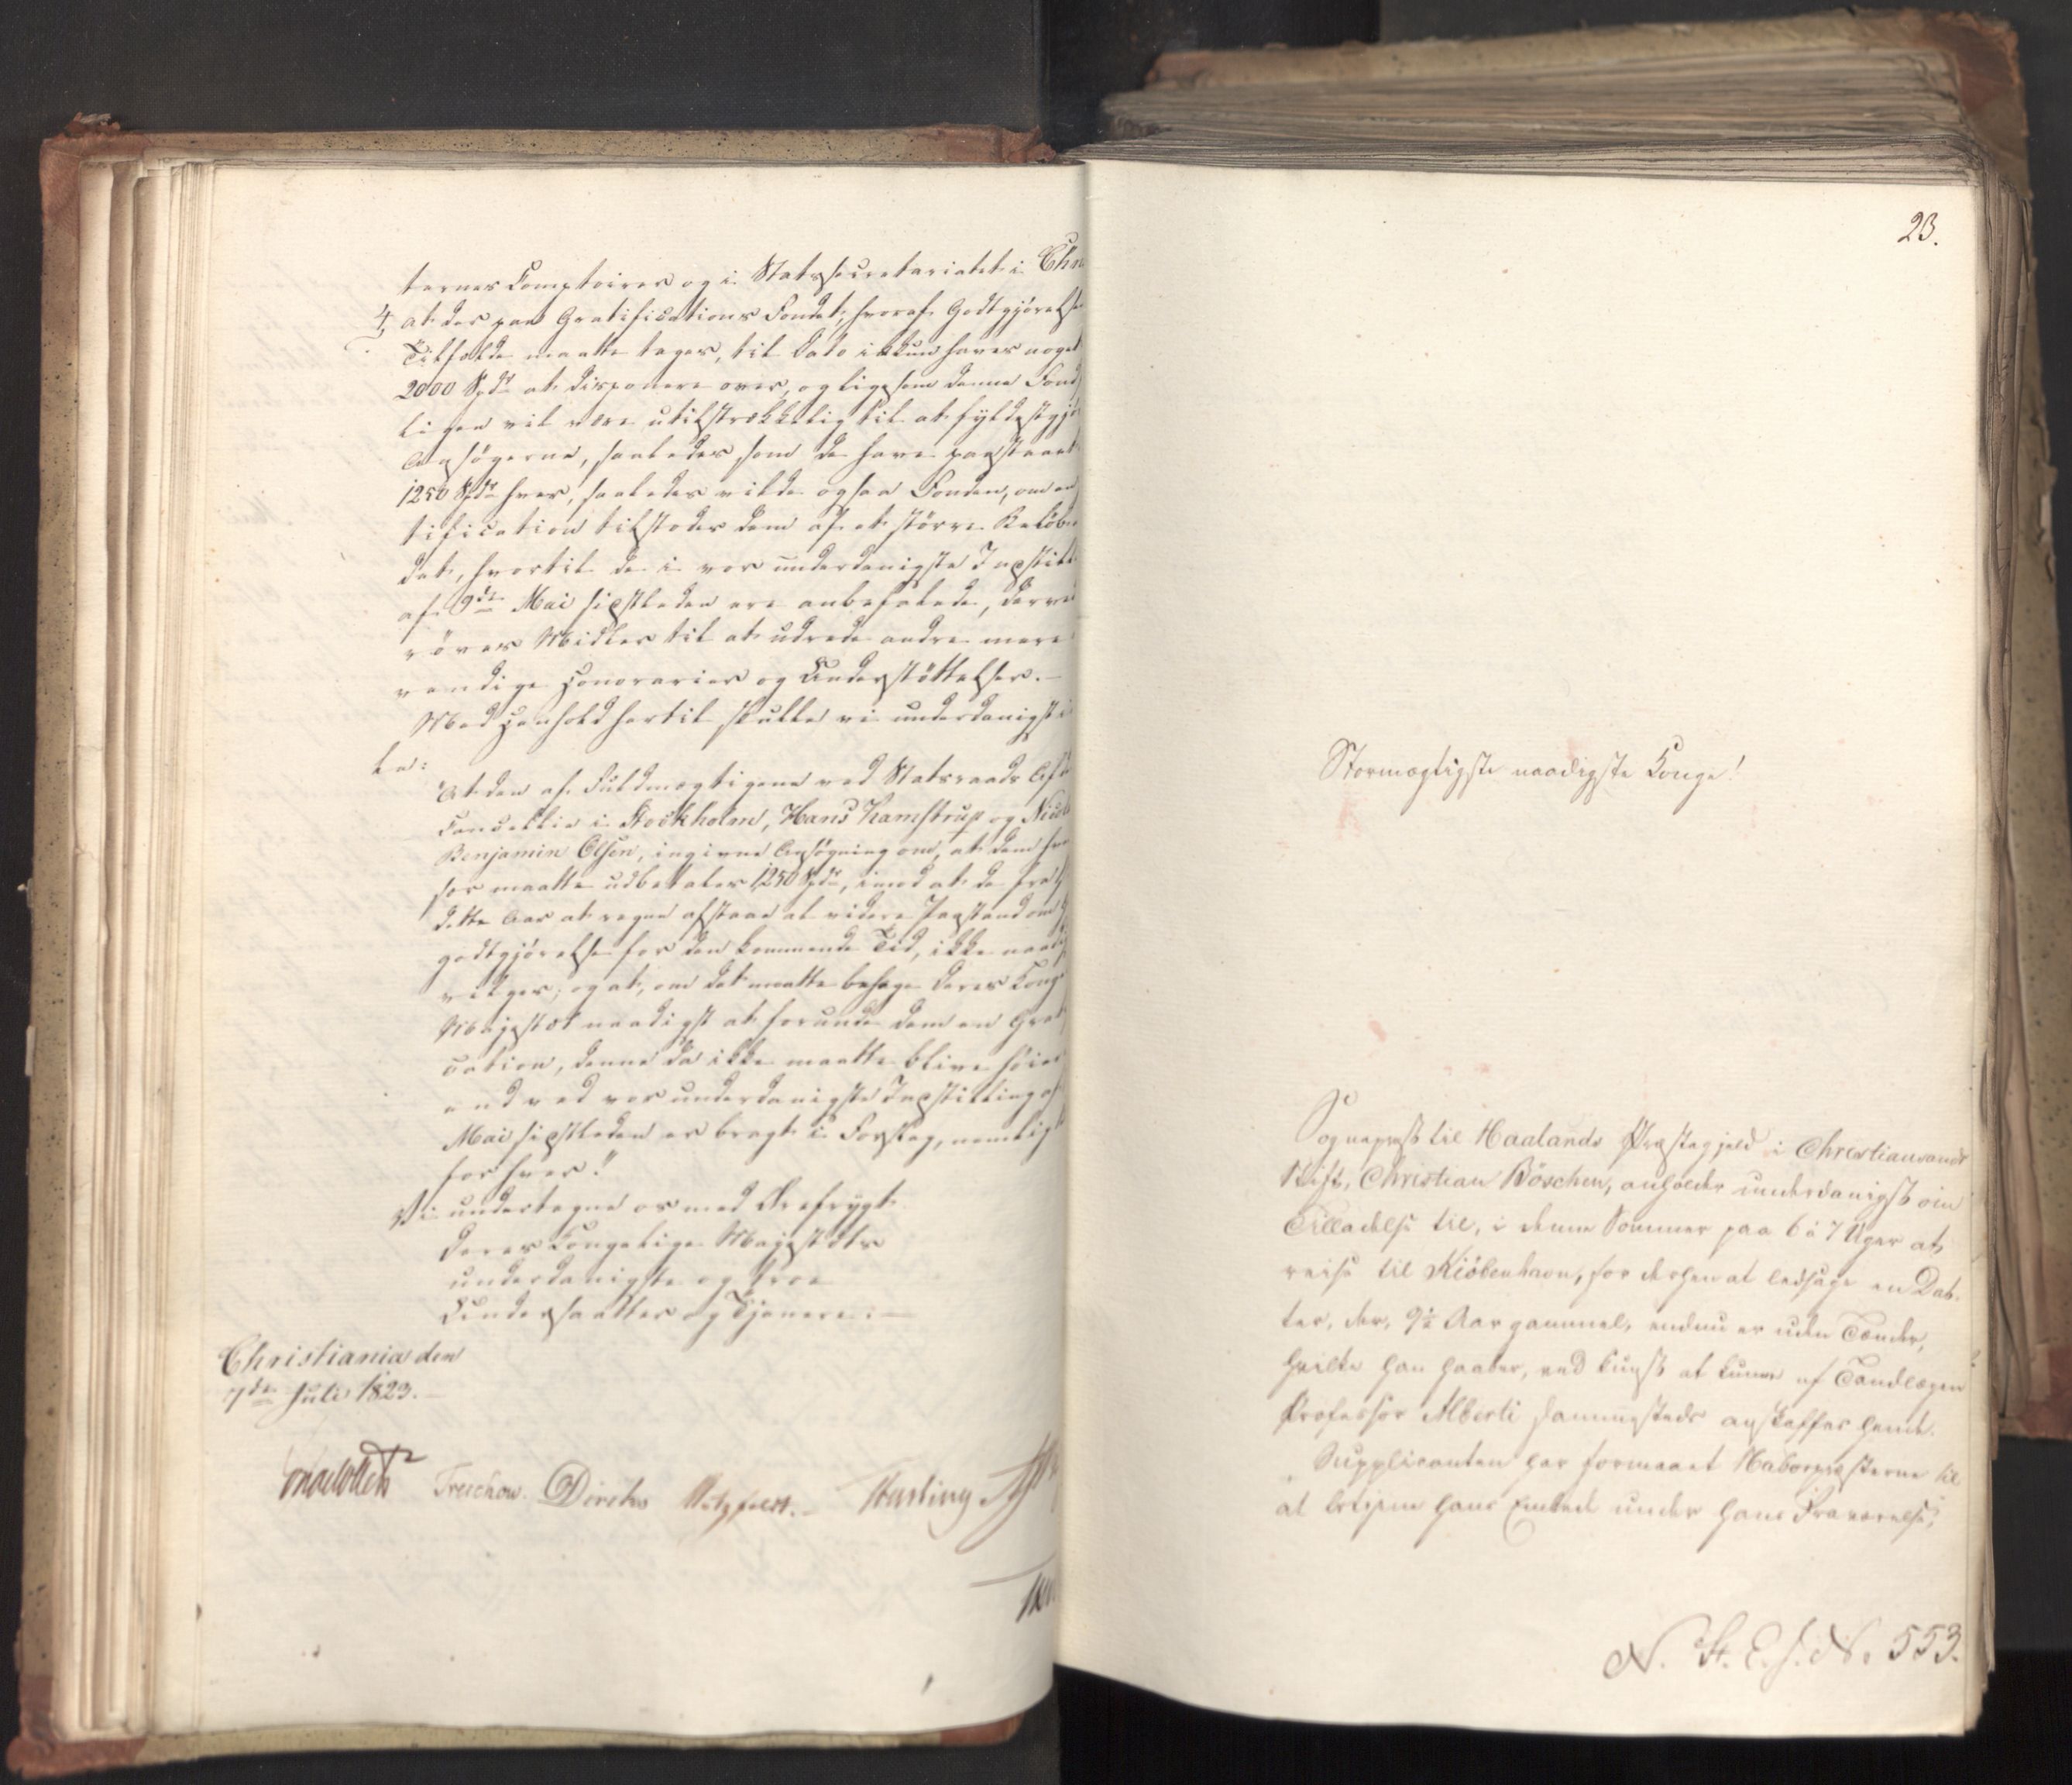 ternes Comptoirer og i Statssecretariatet i Chri
4, at der paa Gratifications Fondet, hvoraf Godtgjørelse
Tilfælde maatte tages, til Dato ikkun haves noget
2000 Spdr at disponere over, og ligesom denne Fond
ligen vil være utilstrækkelig til at fyldestgjø
Ansøgerne, saaledes som de have paastaaet
1250 Spdr hver, saaledes vilde ogsaa Fonden, om en
tification tilstodes dem af et større Beløb
det, hvortil de i vor underdanigste Indstill
af 9de Mai sidstleden ere anbefalede, derved
røves Midler til at udrede andre mere
vendige Honorarier og Understøttelser.
Med Henhold hertil skulle vi underdanigst i
le:
At den af Fuldmægtigene ved Statsraads Afd
Cancellie i Stockholm, Hans Kamstrup og Nicol
Benjamin Olsen, ingivne Ansøgning om, at dem hver
for maatte udbetales 1250 Spdr, imod at de fra
dette Aar at regne afstaae al videre Paastand om
godtgjørelse for den kommende Tid, ikke naadi
vilges; og at, om det maatte behage Deres Konge
Majestæt naadigst at forunde dem en Grat
cation, denne da ikke maatte blive høier
end ved vor underdanigste Indstilling af
Mai sidstleden er bragt i Forslag, nemlig
for hver."
Vi undertegne os med Ærefrygt
Deres Kongelige Majestæts
underdanigste og troe
Undersaatter og Tjenere.
Christiania den
7de Juli 1823.
Treschow. Diriks Motzfeldt. Fasting
23.
Stormægtigste naadigste Konge!
Sognepræst til Haalands Præstegjeld i Christiansands
Stift, Christian Böschen, anholder underdanigst om
Tilladelse til, i denne Sommer paa 6 à 7 Uger at
reise til Kiöbenhavn, for derhen at ledsage en Dat-
ter, der, 9½ Aar gammel, endnu er uden Tænder,
hvilke han haaber, ved Kunst at kunne af Tandlægen
Professor Alberti sammesteds anskaffes hende.
Supplicanten har formaaet Naboepræsterne til
at bestyre hans Embede under hans Fraværelse,
N. St. E. J. No 553.